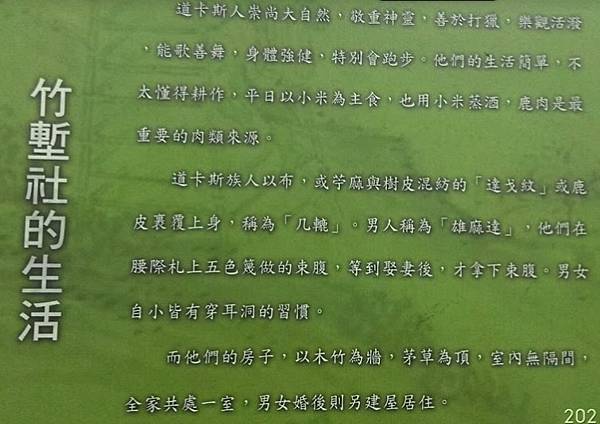 竹塹社的生活
道卡斯人崇尚大自然，敬重神靈，善於打獵，樂觀活潑
，能歌善舞，身體強健，特別會跑步。他們的生活簡單，不
太懂得耕作，平日以小米為主食，也用小米蒸酒，鹿肉是最
重要的肉類來源。
道卡斯族人以布，或苧麻與樹皮混紡的「達戈紋」或鹿
皮裹覆上身，稱為「几轆」。男人稱為「雄麻達」，他們在
腰際札上五色篾做的束腹，等到娶妻後，才拿下束腹。男女
自小皆有穿耳洞的習慣。
而他們的房子，以木竹為牆，茅草為頂，室內無隔間，
全家共處一室，男女婚後則另建屋居住。
202